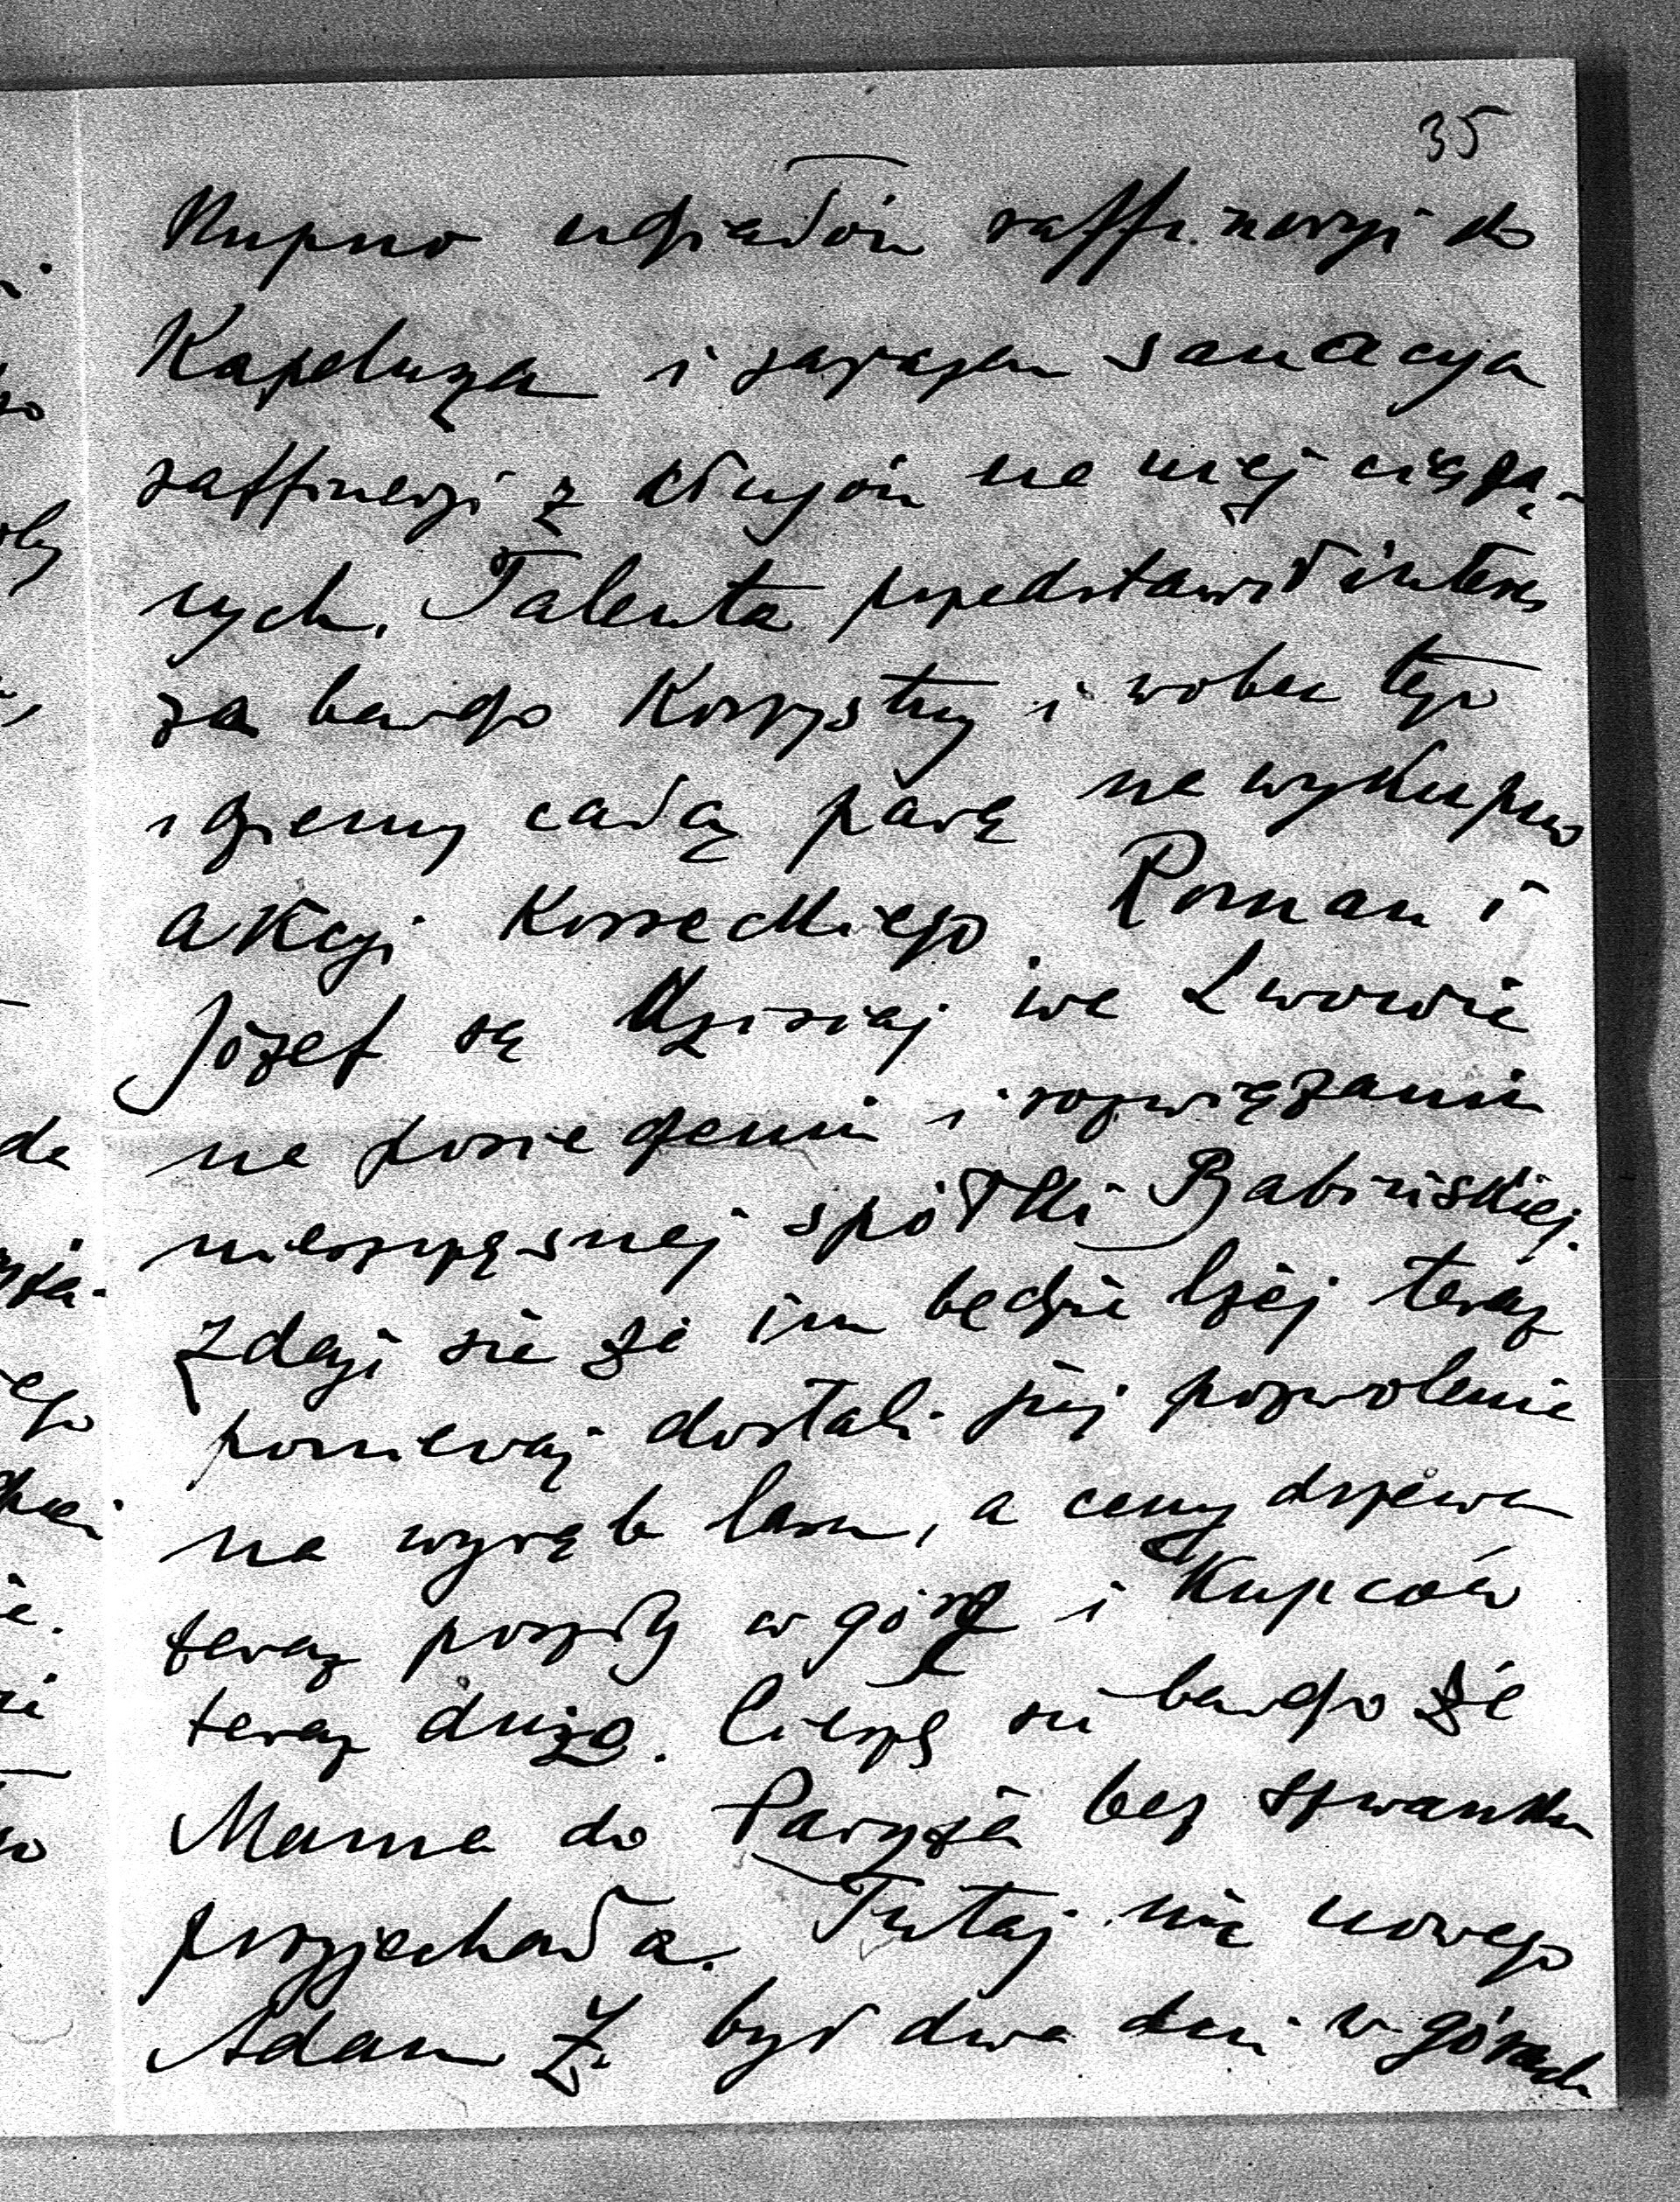 35
Kupno udziałów raffineryi do
Kapeluza i zarazem sanacya
raffineryi z długów na niej ciężą-
cych. Talenta przedstawił interes
za bardzo korzystny i wobec tego
idziemy całą parą na wykupno
akcyi Korseckiego. Roman i
Józef są dzisiaj we Lwowie
na posiedzeniu i rozwiązaniu
nieszczęsnej spółki Babińskiej.
Zdaje sie że im będzie lżej teraz
ponieważ dostali już pozwolenie
na wyręb lasu, a ceny drzewa
teraz poszły w górę i kupców
teraz dużo. Cieszę się bardzo że
Mama do Paryża bez szwanku
przyjechała. Tutaj nic nowego
Adam Z. był dwa dni w górach